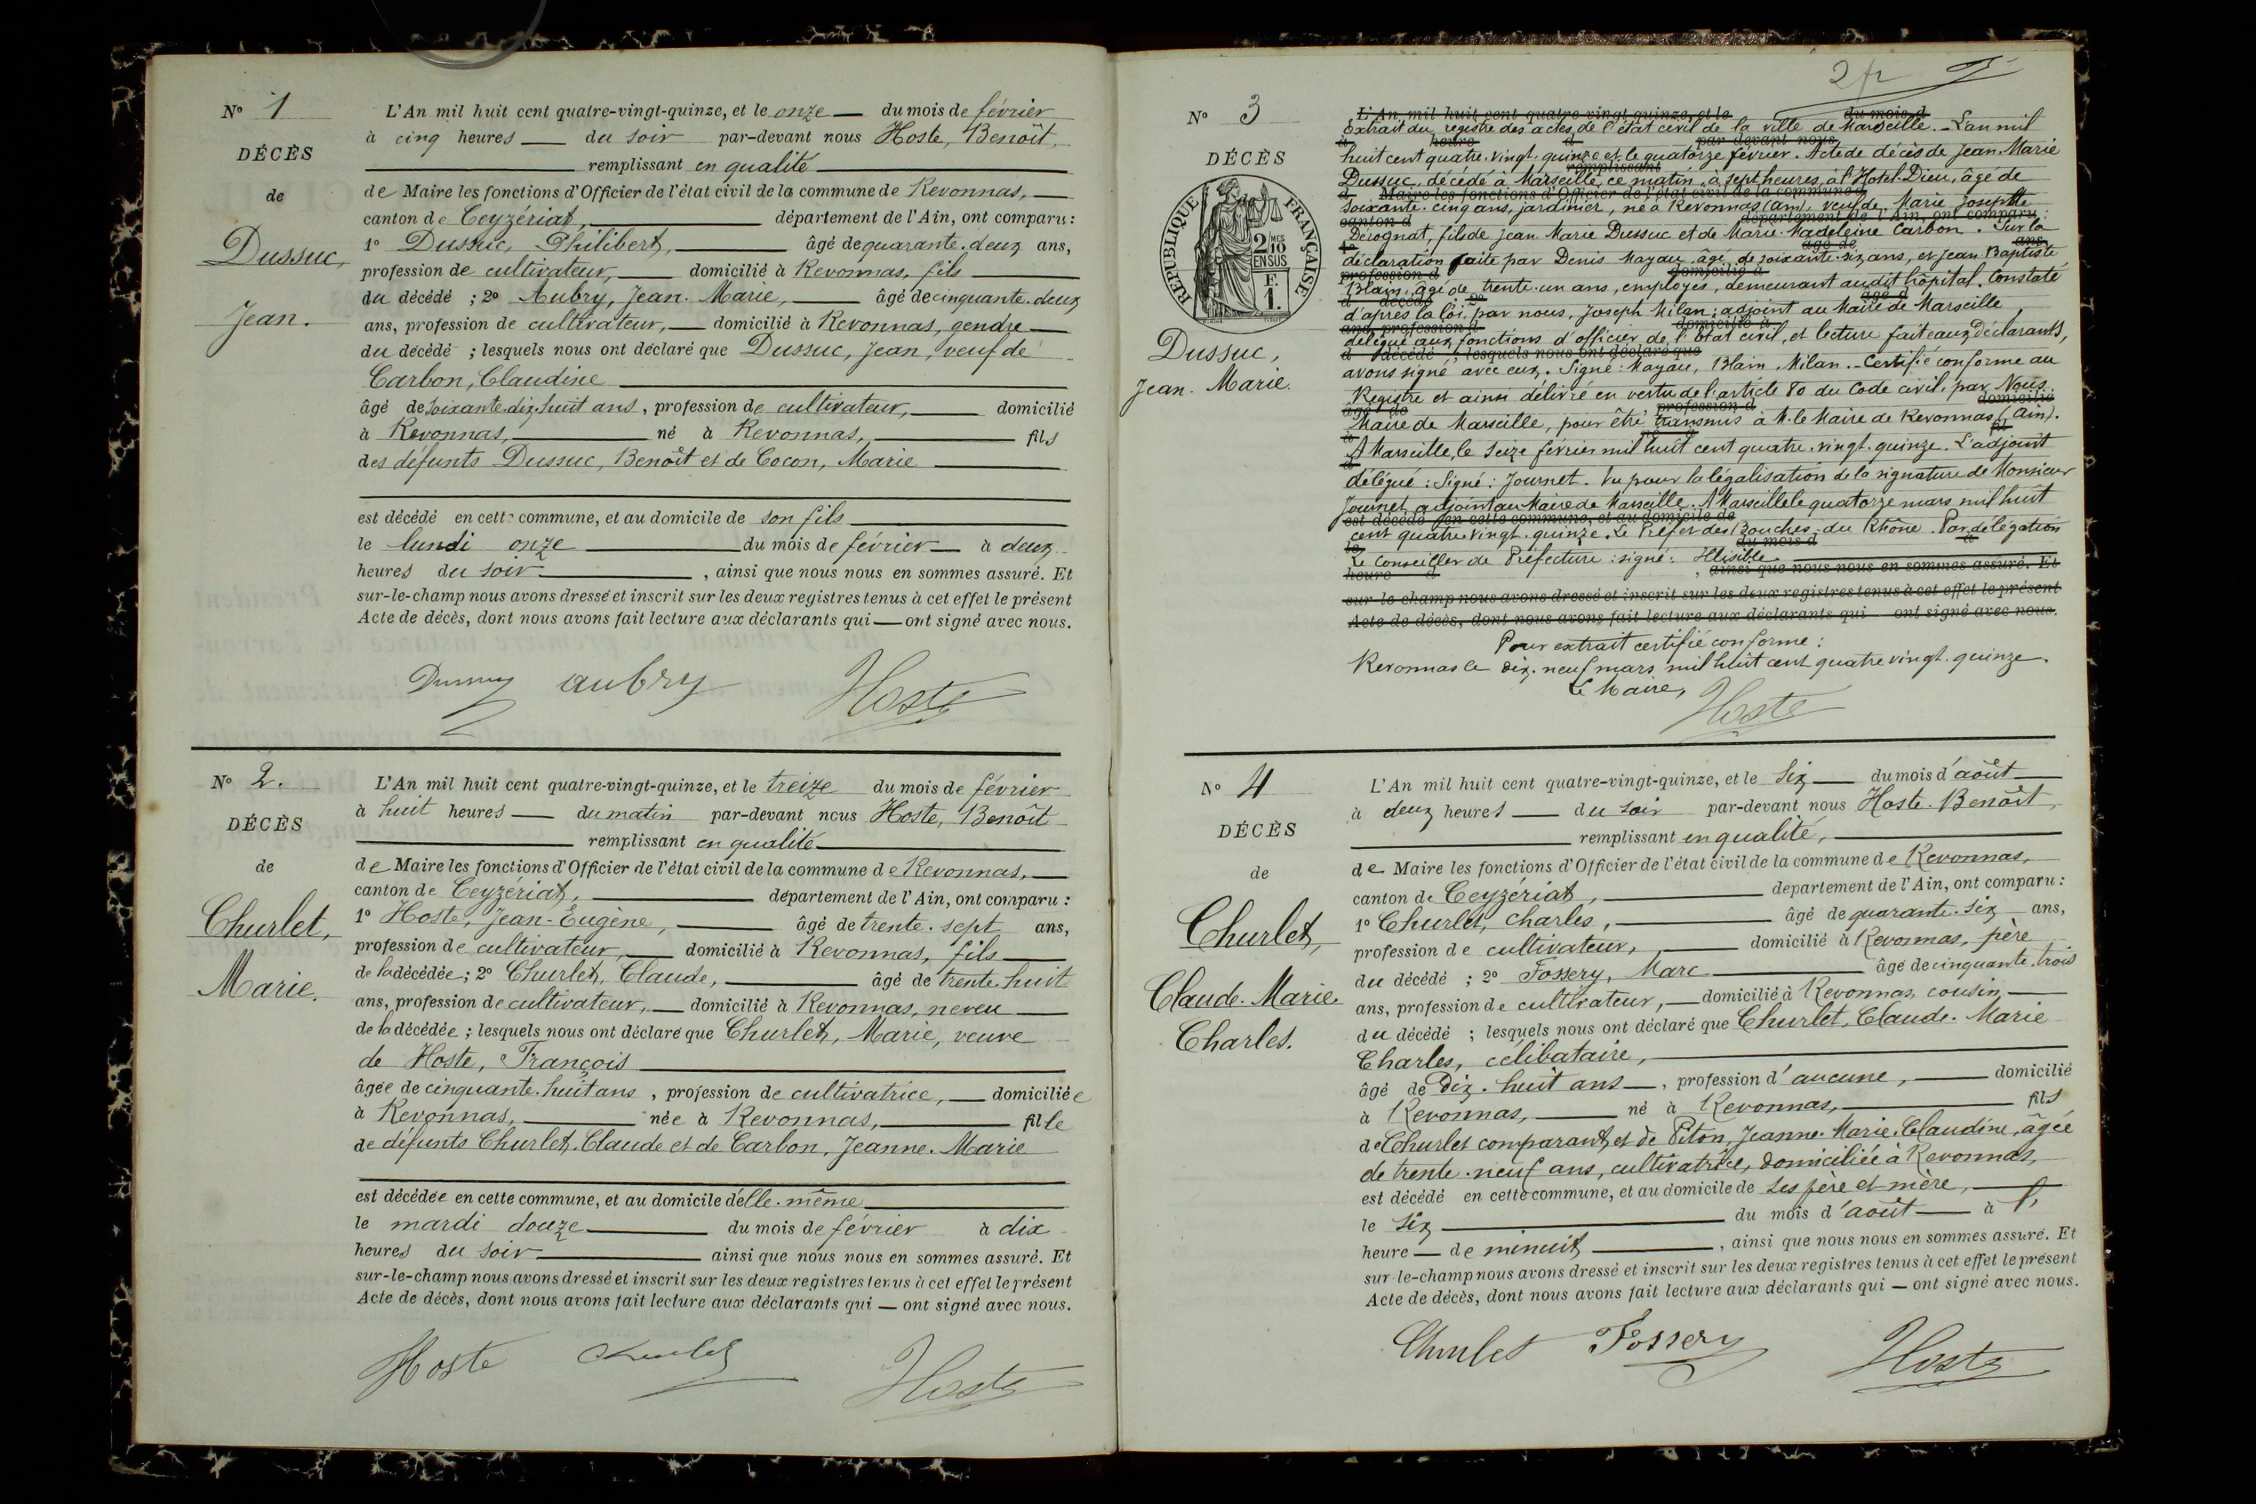 N° 1
DÉCÈS
de
Dussuc,
Jean.
L'An mil huit cent quatre-vingt-quinze, et le onze du mois de février
à cinq heures du soir par-devant nous Hoste, Benoît,
remplissant en qualité
de Maire les fonctions d'Officier de l'état civil de la commune de Revonnas,
canton de Ceyzériat, département de l'Ain, ont comparu :
1° Dussuc, Philibert, âgé de quarante-deux ans,
profession de cultivateur, domicilié à Revonnas, fils
du décédé ; 2° Aubry, Jean-Marie, âgé de cinquante-deux
ans, profession de cultivateur, domicilié à Revonnas, gendre
du décédé ; lesquels nous ont déclaré que Dussuc, Jean, veuf de
Carbon, Claudine
âgé de soixante-dix-huit ans, profession de cultivateur, domicilié
à Revonnas, né à Revonnas, fils
des défunts Dussuc, Benoît et de Cocon, Marie
est décédé en cette commune, et au domicile de son fils
le lundi onze du mois de février à deux
heures du soir, ainsi que nous nous en sommes assuré. Et
sur-le-champ nous avons dressé et inscrit sur les deux registres tenus à cet effet le présent
Acte de décès, dont nous avons fait lecture aux déclarants qui ont signé avec nous.
Dussuc aubry Hoste
N° 2.
DÉCÈS
de
Churlet,
Marie.
L'An mil huit cent quatre-vingt-quinze, et le treize du mois de février
à huit heures du matin par-devant nous Hoste, Benoît
remplissant en qualité
de Maire les fonctions d'Officier de l'état civil de la commune de Revonnas,
canton de Ceyzériat, département de l'Ain, ont comparu :
1° Hoste, Jean-Eugène, âgé de trente-sept ans,
profession de cultivateur, domicilié à Revonnas, fils
de la décédée ; 2° Churlet, Claude, âgé de trente-huit
ans, profession de cultivateur, domicilié à Revonnas, neveu
de la décédée ; lesquels nous ont déclaré que Churlet, Marie, veuve
de Hoste, François
âgée de cinquante-huit ans, profession de cultivatrice, domiciliée
à Revonnas, née à Revonnas, fille
de défunts Churlet, Claude et de Carbon, Jeanne-Marie
est décédée en cette commune, et au domicile d'elle-même
le mardi douze du mois de février à dix
heures du soir ainsi que nous nous en sommes assuré. Et
sur-le-champ nous avons dressé et inscrit sur les deux registres tenus à cet effet le présent
Acte de décès, dont nous avons fait lecture aux déclarants qui ont signé avec nous.
Hoste Churlet Hoste
N° 3
DÉCÈS
RÉPUBLIQUE FRANÇAISE
2 MES 10 EN SUS
F. 1.
Dussuc,
Jean-Marie.
L'An mil huit cent quatre-vingt-quinze, et le du mois d
Extrait du registre des actes de l'état civil de la ville de Marseille. - L'an mil
huit cent quatre-vingt-quinze et le quatorze février. Acte de décès de Jean-Marie
Dussuc, décédé à Marseille, ce matin, à sept heures, à l'Hotel-Dieu, âgé de
soixante-cinq ans, jardinier, né à Revonnas (ain), veuf de Marie Josephte
Derognat, fils de jean Marie Dussuc et de Marie-Madeleine Carbon. Sur la
déclaration faite par Denis Mayau âgé de soixante-six ans, et Jean Baptiste
Blain, âgé de trente-un ans, employés, demeurant audit hôpital. Constaté
d'après la loi par nous, Joseph Milan, adjoint au Maire de Marseille,
délégué aux fonctions d'officier de l'état civil, et lecture faite aux déclarants,
avons signé avec eux. Signé : Mayau, Blain, Milan. - Certifié conforme au
Registre et ainsi délivré en vertu de l'article 80 du Code civil, par Nous
Maire de Marseille, pour être transmis à M. le Maire de Revonnas (Ain).
A Marseille, le seize février mil huit cent quatre-vingt-quinze. L'adjoint
délégué : Signé : Journet. Vu pour la légalisation de la signature de Monsieur
Journet adjoint au Maire de Marseille. A Marseille le quatorze mars mil huit
est décédé en cette commune, et au domicile de
cent quatre-vingt-quinze. Le Préfet des Bouches-du Rhône. Par délégation
Le Conseiller de Préfecture : signé : Illisible
ainsi que nous nous en sommes assuré. Et
sur-le-champ nous avons dressé et inscrit sur les deux registres tenus à cet effet le présent
Acte de décès, dont nous avons fait lecture aux déclarants qui ont signé avec nous.
Pour extrait certifié conforme :
Revonnas le dix-neuf mars mil huit cent quatre vingt-quinze.
Le Maire,
Hoste
N° 4
DÉCÈS
de
Churlet,
Claude-Marie
Charles.
L'An mil huit cent quatre-vingt-quinze, et le six du mois d'août
à deux heures du soir par-devant nous Hoste Benoît,
remplissant en qualité,
de Maire les fonctions d'Officier de l'état civil de la commune de Revonnas,
canton de Ceyzériat, département de l'Ain, ont comparu :
1° Churlet, Charles, âgé de quarante-six ans,
profession de cultivateur, domicilié à Revonnas, père
du décédé ; 2° Fossery, Marc âgé de cinquante-trois
ans, profession de cultivateur, domicilié à Revonnas, cousin
du décédé ; lesquels nous ont déclaré que Churlet, Claude-Marie
Charles, célibataire,
âgé de dix-huit ans, profession d'aucune, domicilié
à Revonnas, né à Revonnas, fils
de Churlet comparant, et de Piton, Jeanne-Marie-Claudine, âgée
de trente-neuf ans, cultivatrice, domiciliée à Revonnas,
est décédé en cette commune, et au domicile de ses père et mère,
le six du mois d'août à l'
heure de minuit, ainsi que nous nous en sommes assuré. Et
sur-le-champ nous avons dressé et inscrit sur les deux registres tenus à cet effet le présent
Acte de décès, dont nous avons fait lecture aux déclarants qui ont signé avec nous.
Churlet Fossery Hoste